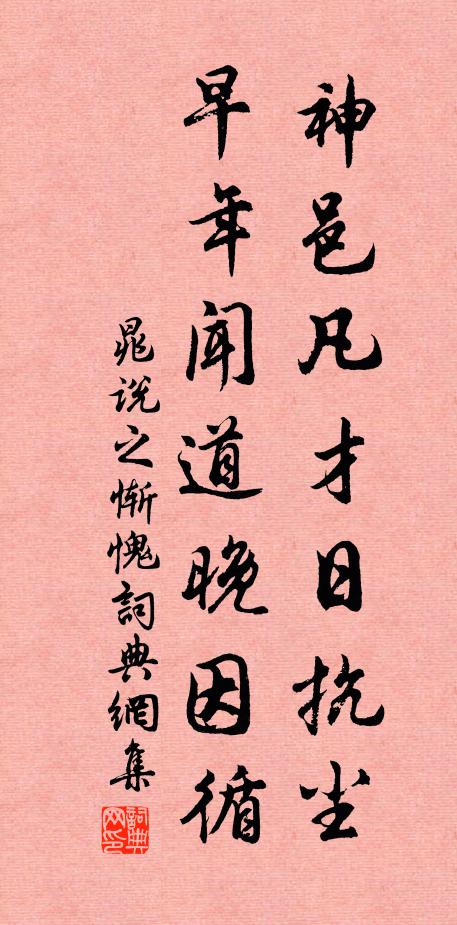 神邑凡才日抗尘
早年闻道晚因循
晁说之惭愧詞典網集
詞典网印